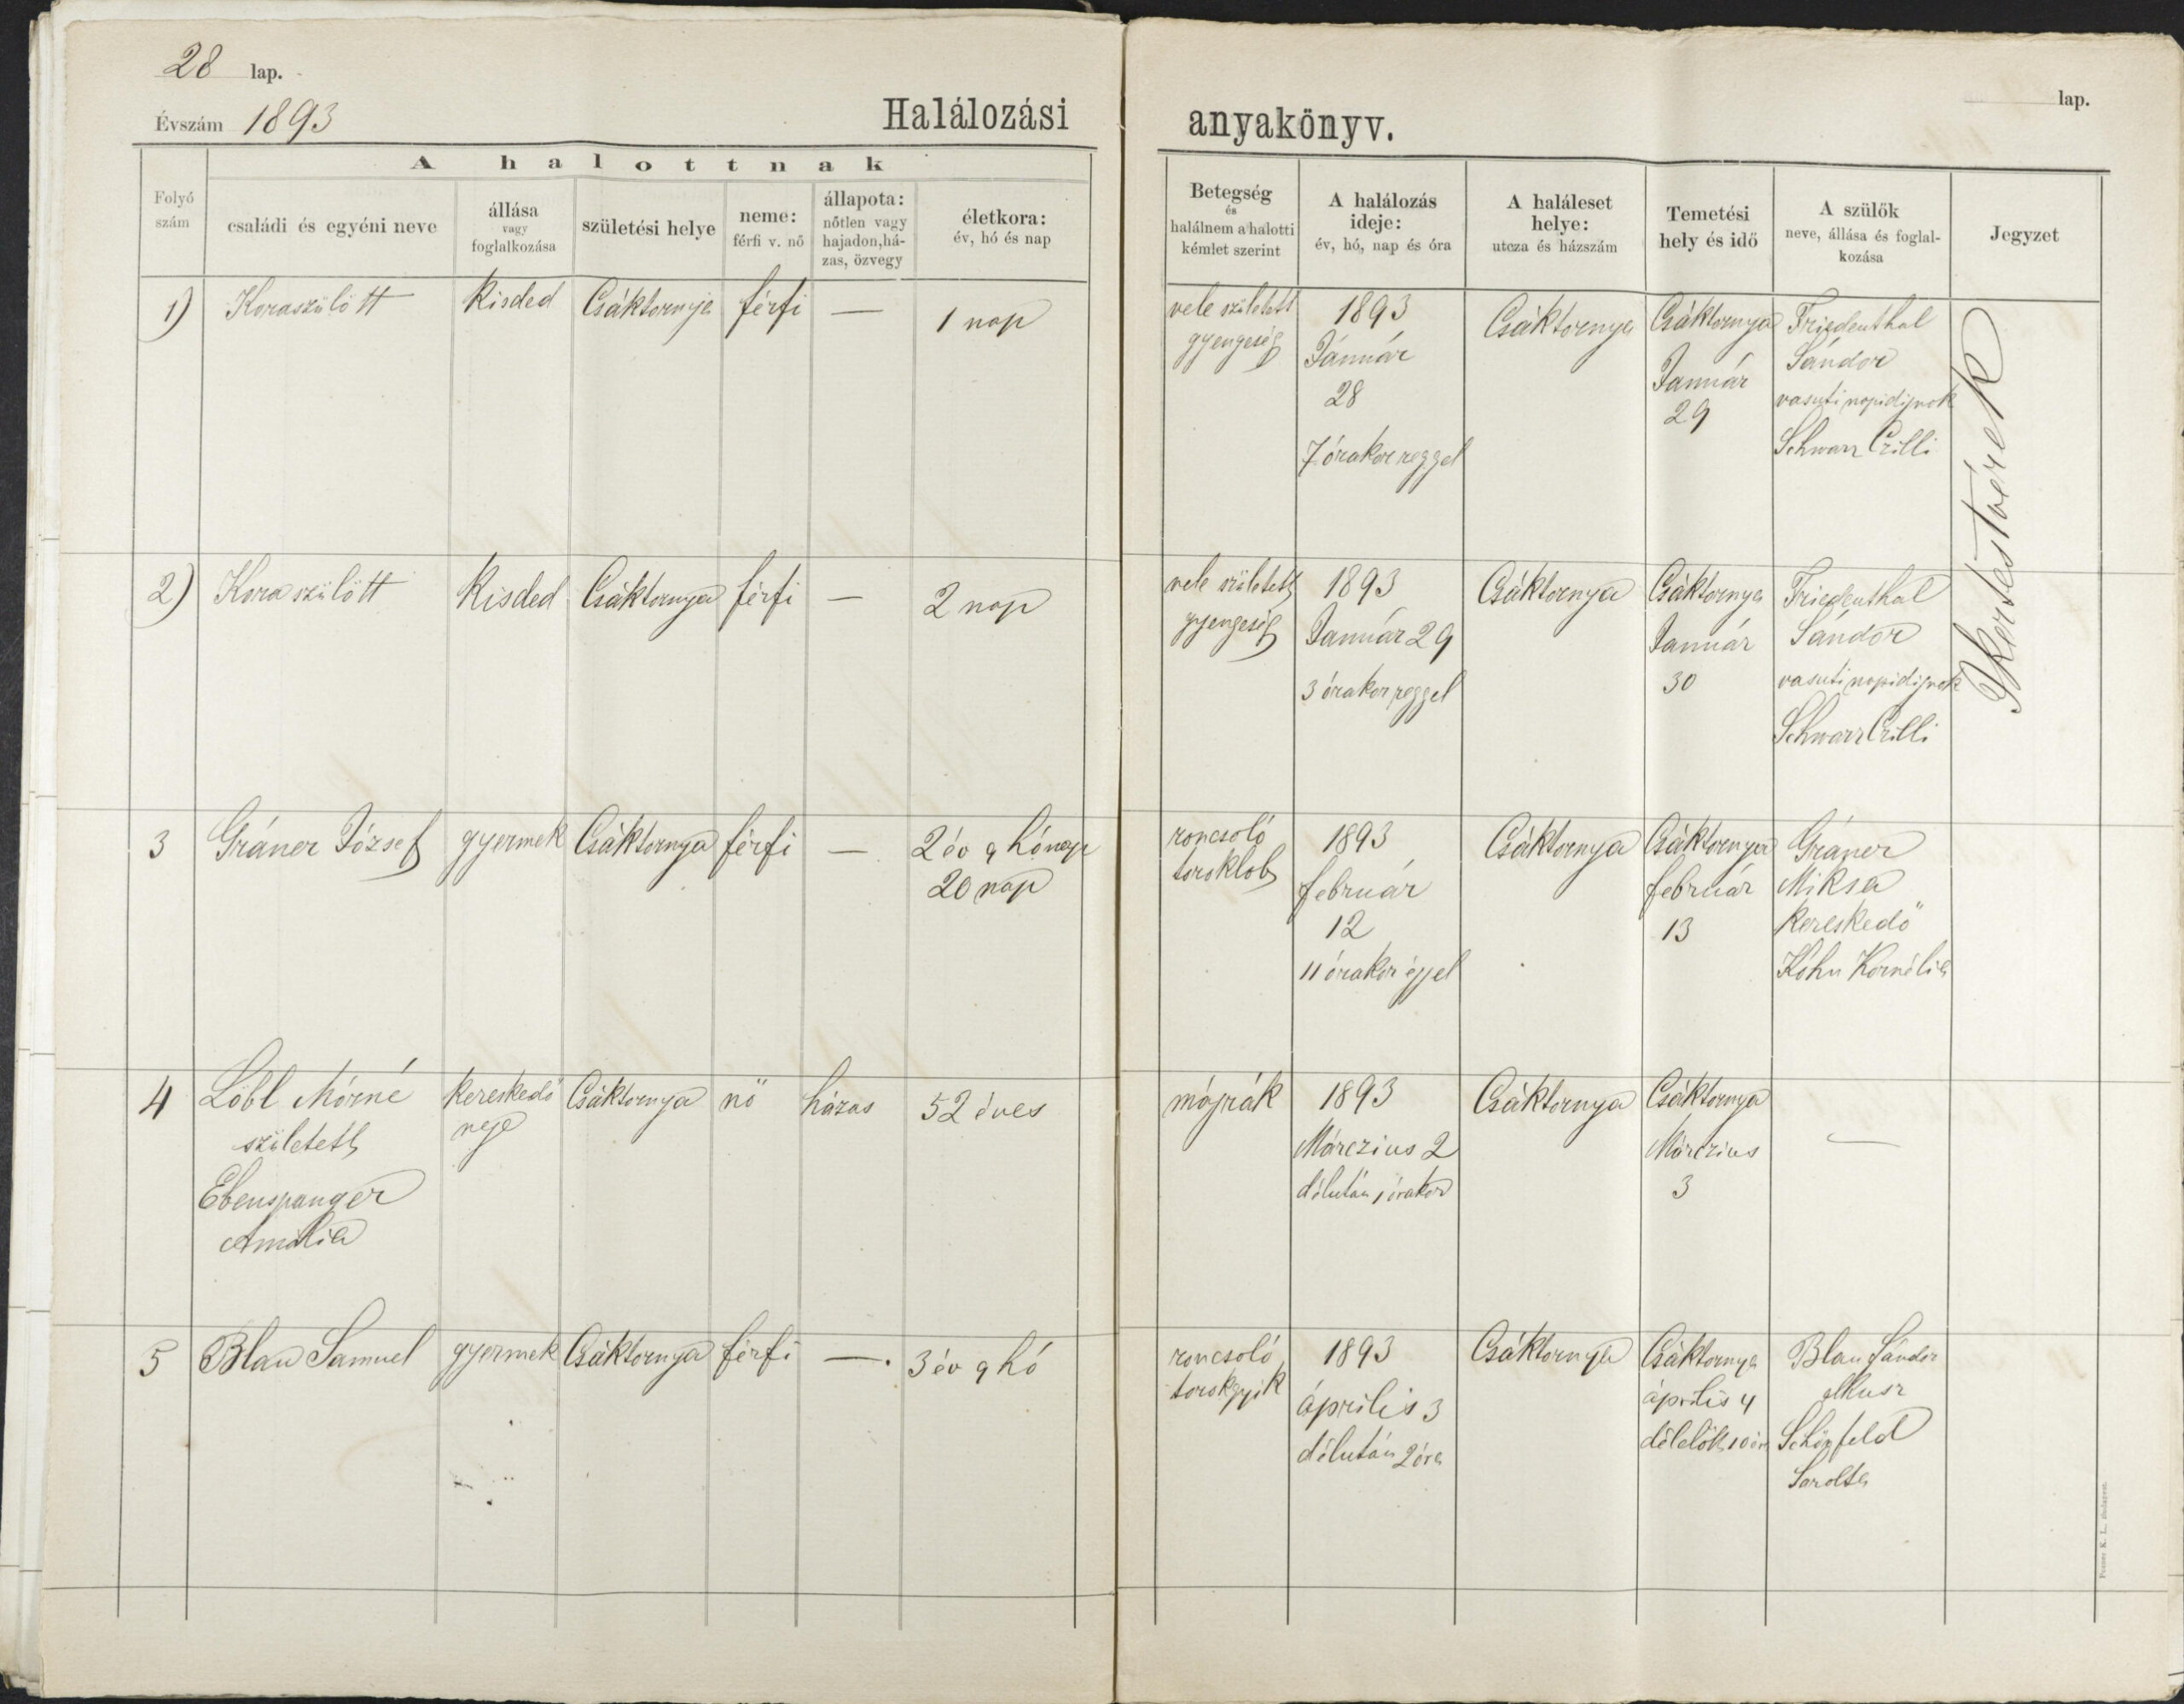 28 lap.
Évszám 1893
Halálozási anyakönyv.
lap.
A halottnak
Folyó szám
családi és egyéni neve
állása vagy foglalkozása
születési helye
neme: férfi v. nő
állapota: nőtlen vagy hajadon, házas, özvegy
életkora: év, hó és nap
Betegség és halálnem a halotti kémlet szerint
A halálozás ideje: év, hó, nap és óra
A haláleset helye: utcza és házszám
Temetési hely és idő
A szülők neve, állása és foglalkozása
Jegyzet
1)
Koraszülött
kisded
Csáktornya
férfi
—
1 nap
vele született
gyengeség
1893
Január
28
7 órakor reggel
Csáktornya
Csáktornya
Január
29
Friedenthal
Sándor
vasuti napidijnok
Schwarz Czilli
Ikertestvérek
2)
Koraszülött
Kisded
Csáktornya
férfi
—
2 nap
vele született
gyengeség
1893
Január 29
3 órakor reggel
Csáktornya
Csáktornya
Január
30
Friedenthal
Sándor
vasuti napidijnok
Schwarz Czilli
3
Gráner József
gyermek
Csáktornya
férfi
—
2 év 9 hónap
20 nap
roncsoló
toroklob
1893
február
12
11 órakor éjjel
Csáktornya
Csáktornya
február
13
Gráner
Miksa
kereskedő
Kohn Kornélia
4
Löbl Mórné
született
Ebenspanger
Amália
kereskedő
neje
Csáktornya
nő
házas
52 éves
májrák
1893
Márczius 2
délután 1 órakor
Csáktornya
Csáktornya
Márczius
3
—
5
Blau Samuel
gyermek
Csáktornya
férfi
—.
3 év 9 hó
roncsoló
torokgyik
1893
április 3
délután 2 óra
Csáktornya
Csáktornya
április 4
délelőtt 10 óra
Blau Sándor
alkusz
Schönfeld
Sarolta
Posner K. L. Budapest.